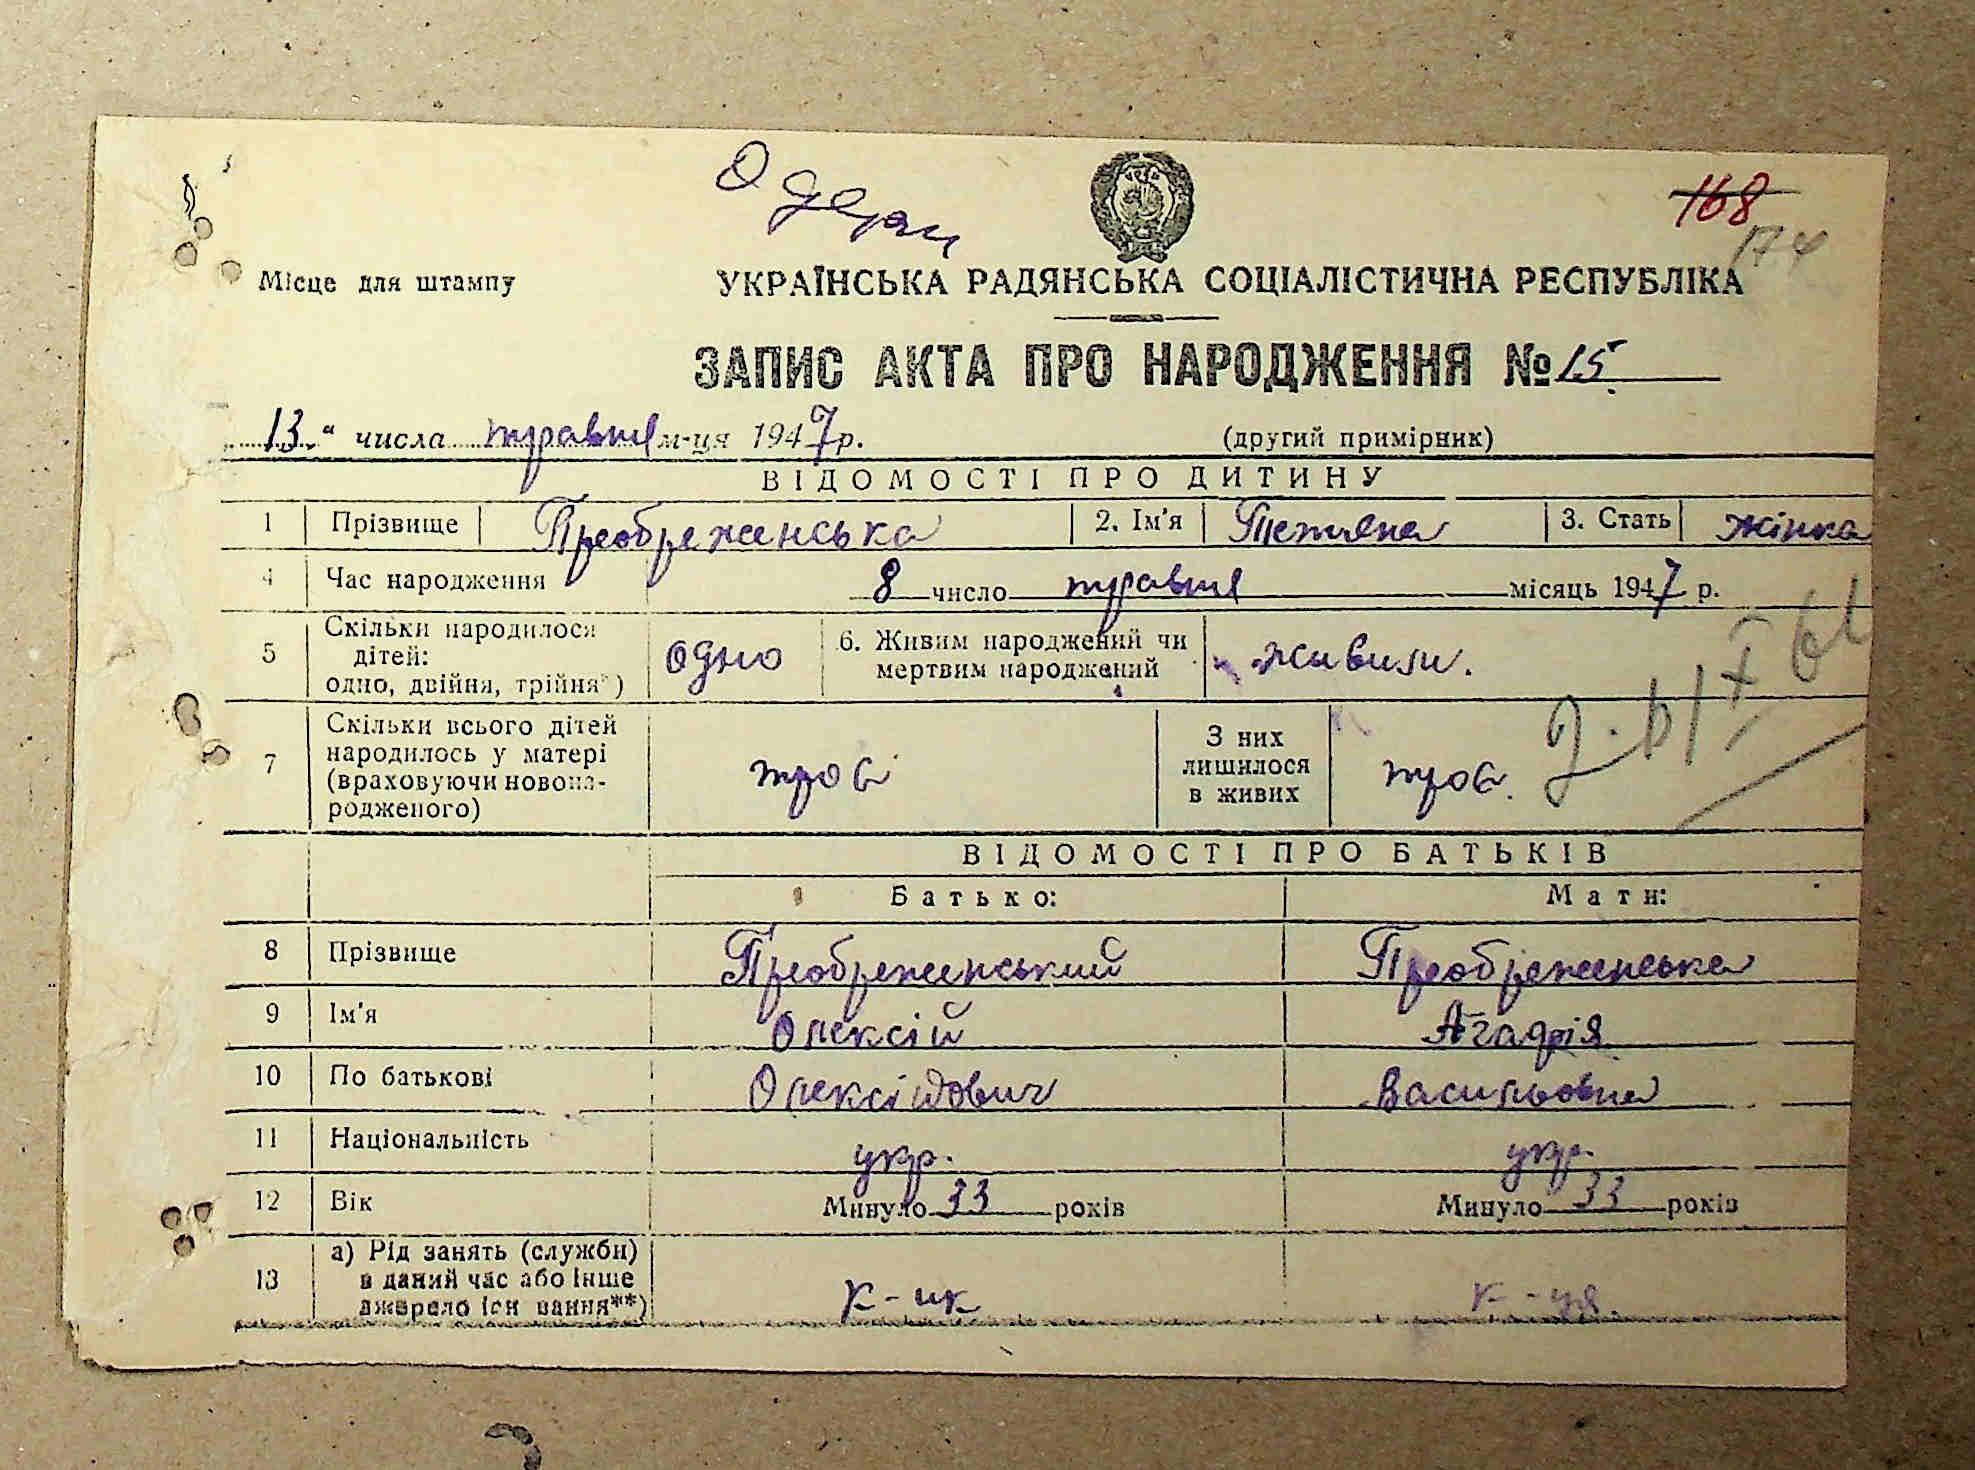 168
174
Місце для штампу
УКРАЇНСЬКА РАДЯНСЬКА СОЦІАЛІСТИЧНА РЕСПУБЛІКА
ЗАПИС АКТА ПРО НАРОДЖЕННЯ № 15
„13“ числа травня м-ця 1947 р. (другий примірник)
ВІДОМОСТІ ПРО ДИТИНУ
1 Прізвище Преображенська 2. Ім'я Тетяна 3. Стать жінка
4 Час народження 8 число травня місяць 1947 р.
5 Скільки народилося дітей: одно, двійня, трійня*) одно 6. Живим народжений чи мертвим народжений живим.
7 Скільки всього дітей народилось у матері (враховуючи новонародженого) троє З них лишилося в живих троє.
ВІДОМОСТІ ПРО БАТЬКІВ
Батько: Мати:
8 Прізвище Преображенський Преображенська
9 Ім'я Олексій Агафія
10 По батькові Олексійович Васильовна
11 Національність укр. укр.
12 Вік Минуло 33 років Минуло 33 років
13 а) Рід занять (служби) в даний час або інше джерело існування**) к-ик к-ця.